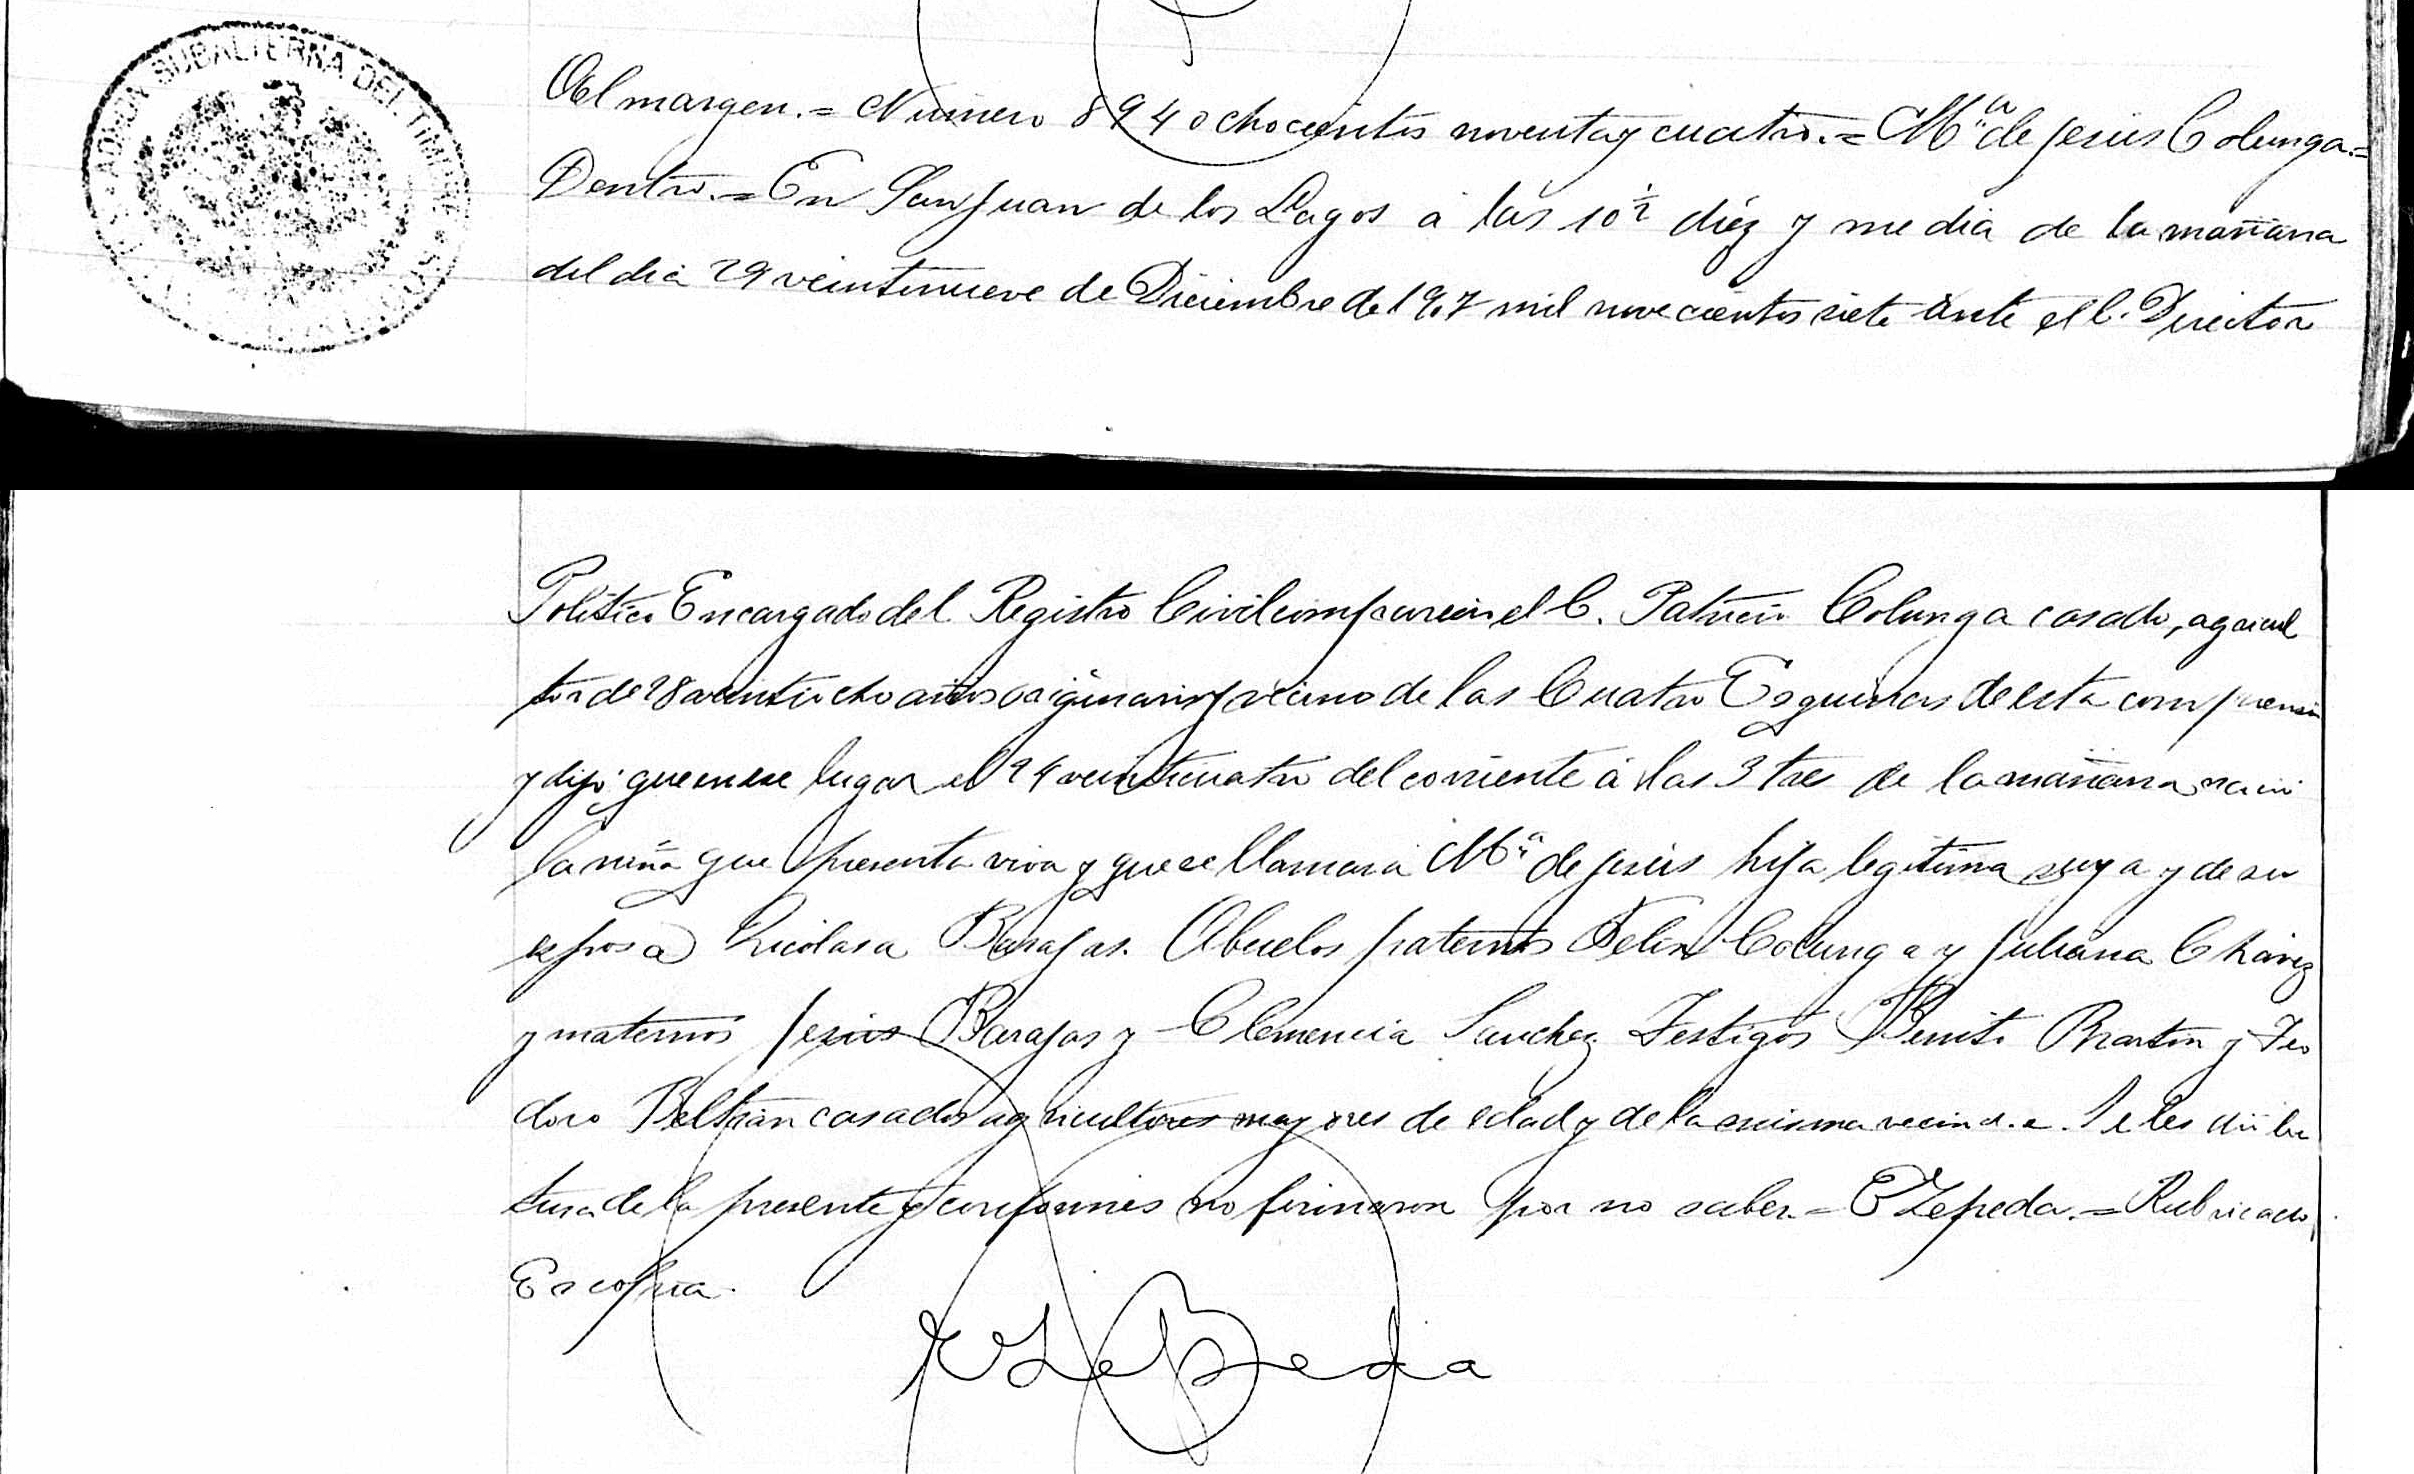 ADMON SUBALTERNA DEL TIMBRE
Al margen.= Número 894 ochocientos noventa y cuatro.= Mª de Jesús Colunga.=
Dentro.= En San Juan de los Lagos á las 10½ diéz y media de la mañana
del dia 29 veintinueve de Diciembre de 1907 mil novecientos siete ante el C. Director
Politico Encargado del Registro Civil compareció el C. Patricio Colunga casado, agricul
tor de 28 veintiocho años originario y vecino de las Cuatro Esquinas de esta comprensión
y dijo: que en ese lugar el 24 veinticuatro del corriente á las 3 tres de la mañana nació
la niña que presenta viva y que se llamará Mª de Jesús hija legitima suya y de su
esposa Nicolasa Barajas. Abuelos paternos Felix Colunga y Juliana Chávez
y maternos Jesús Barajas y Clemencia Sanchez Testigos Benito Martin y Teo
doro Beltrán casados agricultores mayores de edad y de la misma vecind.e Se les dió lec
tura de la presente y conformes no firmaron por no saber.= E Zepeda.= Rubricado
Es copia.
E Zepeda